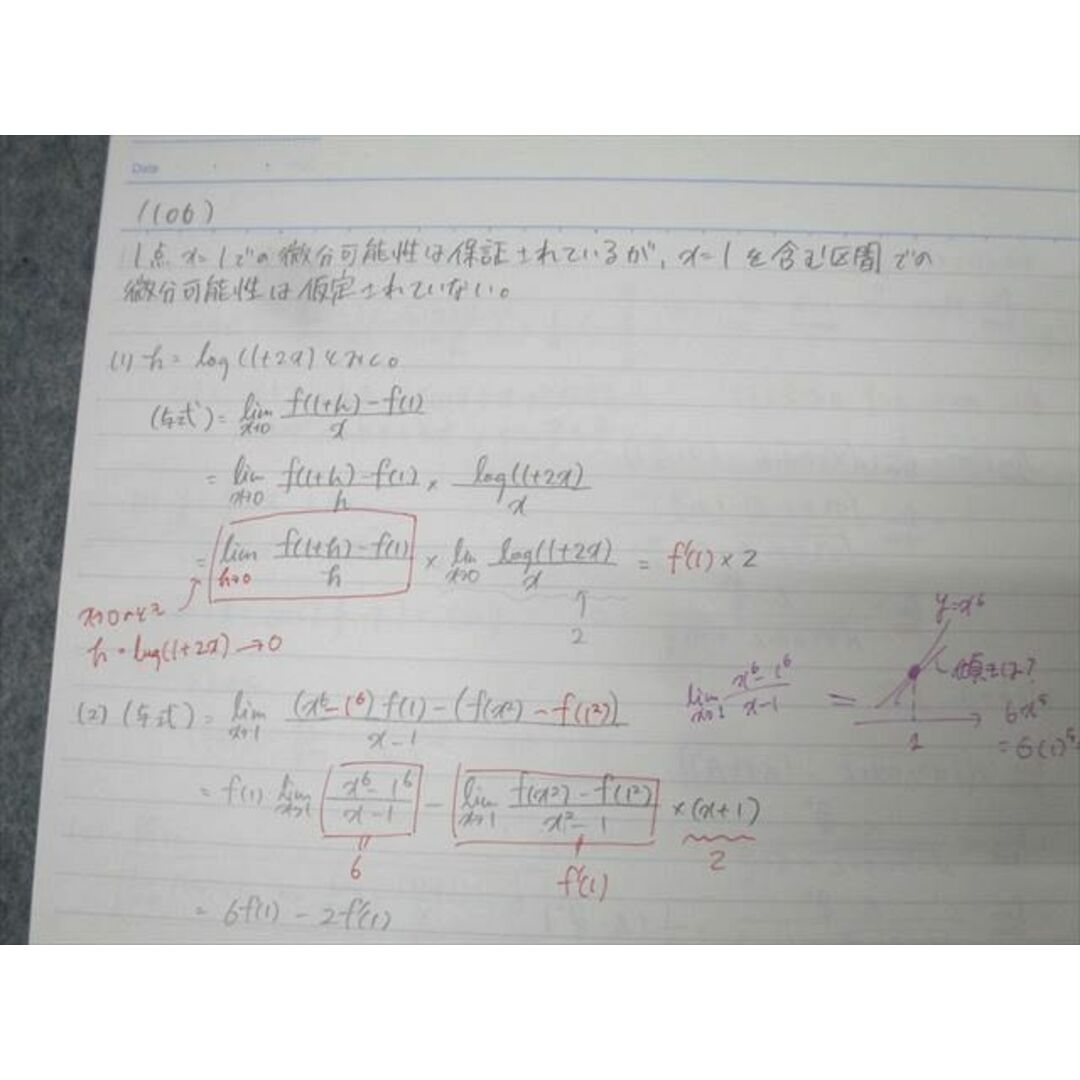 Date
(106)
1点x=1での微分可能性は保証されているが, x=1を含む区間での
微分可能性は仮定されていない。
(1) h = log(1+2x) とおくと
(与式) = lim x→0 f(1+h)-f(1) / x
= lim x→0 f(1+h)-f(1) / h × log(1+2x) / x
= lim h→0 f(1+h)-f(1) / h × lim x→0 log(1+2x) / x = f'(1)×2
x→0のとき
h=log(1+2x)→0
2
(2) (与式) = lim x→1 (x⁶-1⁶)f(1)-(f(x²)-f(1²)) / x-1
lim x→1 x⁶-1⁶ / x-1 =
y=x⁶
傾きは?
1
6x⁵
=6(1)⁵
= f(1) lim x→1 x⁶-1⁶ / x-1 - lim x→1 f(x²)-f(1²) / x²-1 ×(x+1)
6
f'(1)
2
= 6f(1) - 2f'(1)